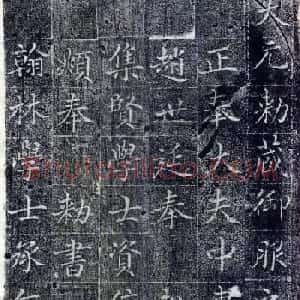 大元勅藏御服
正奉大夫中
趙世延奉
集賢學士資
頫奉 勅書
翰林學士承